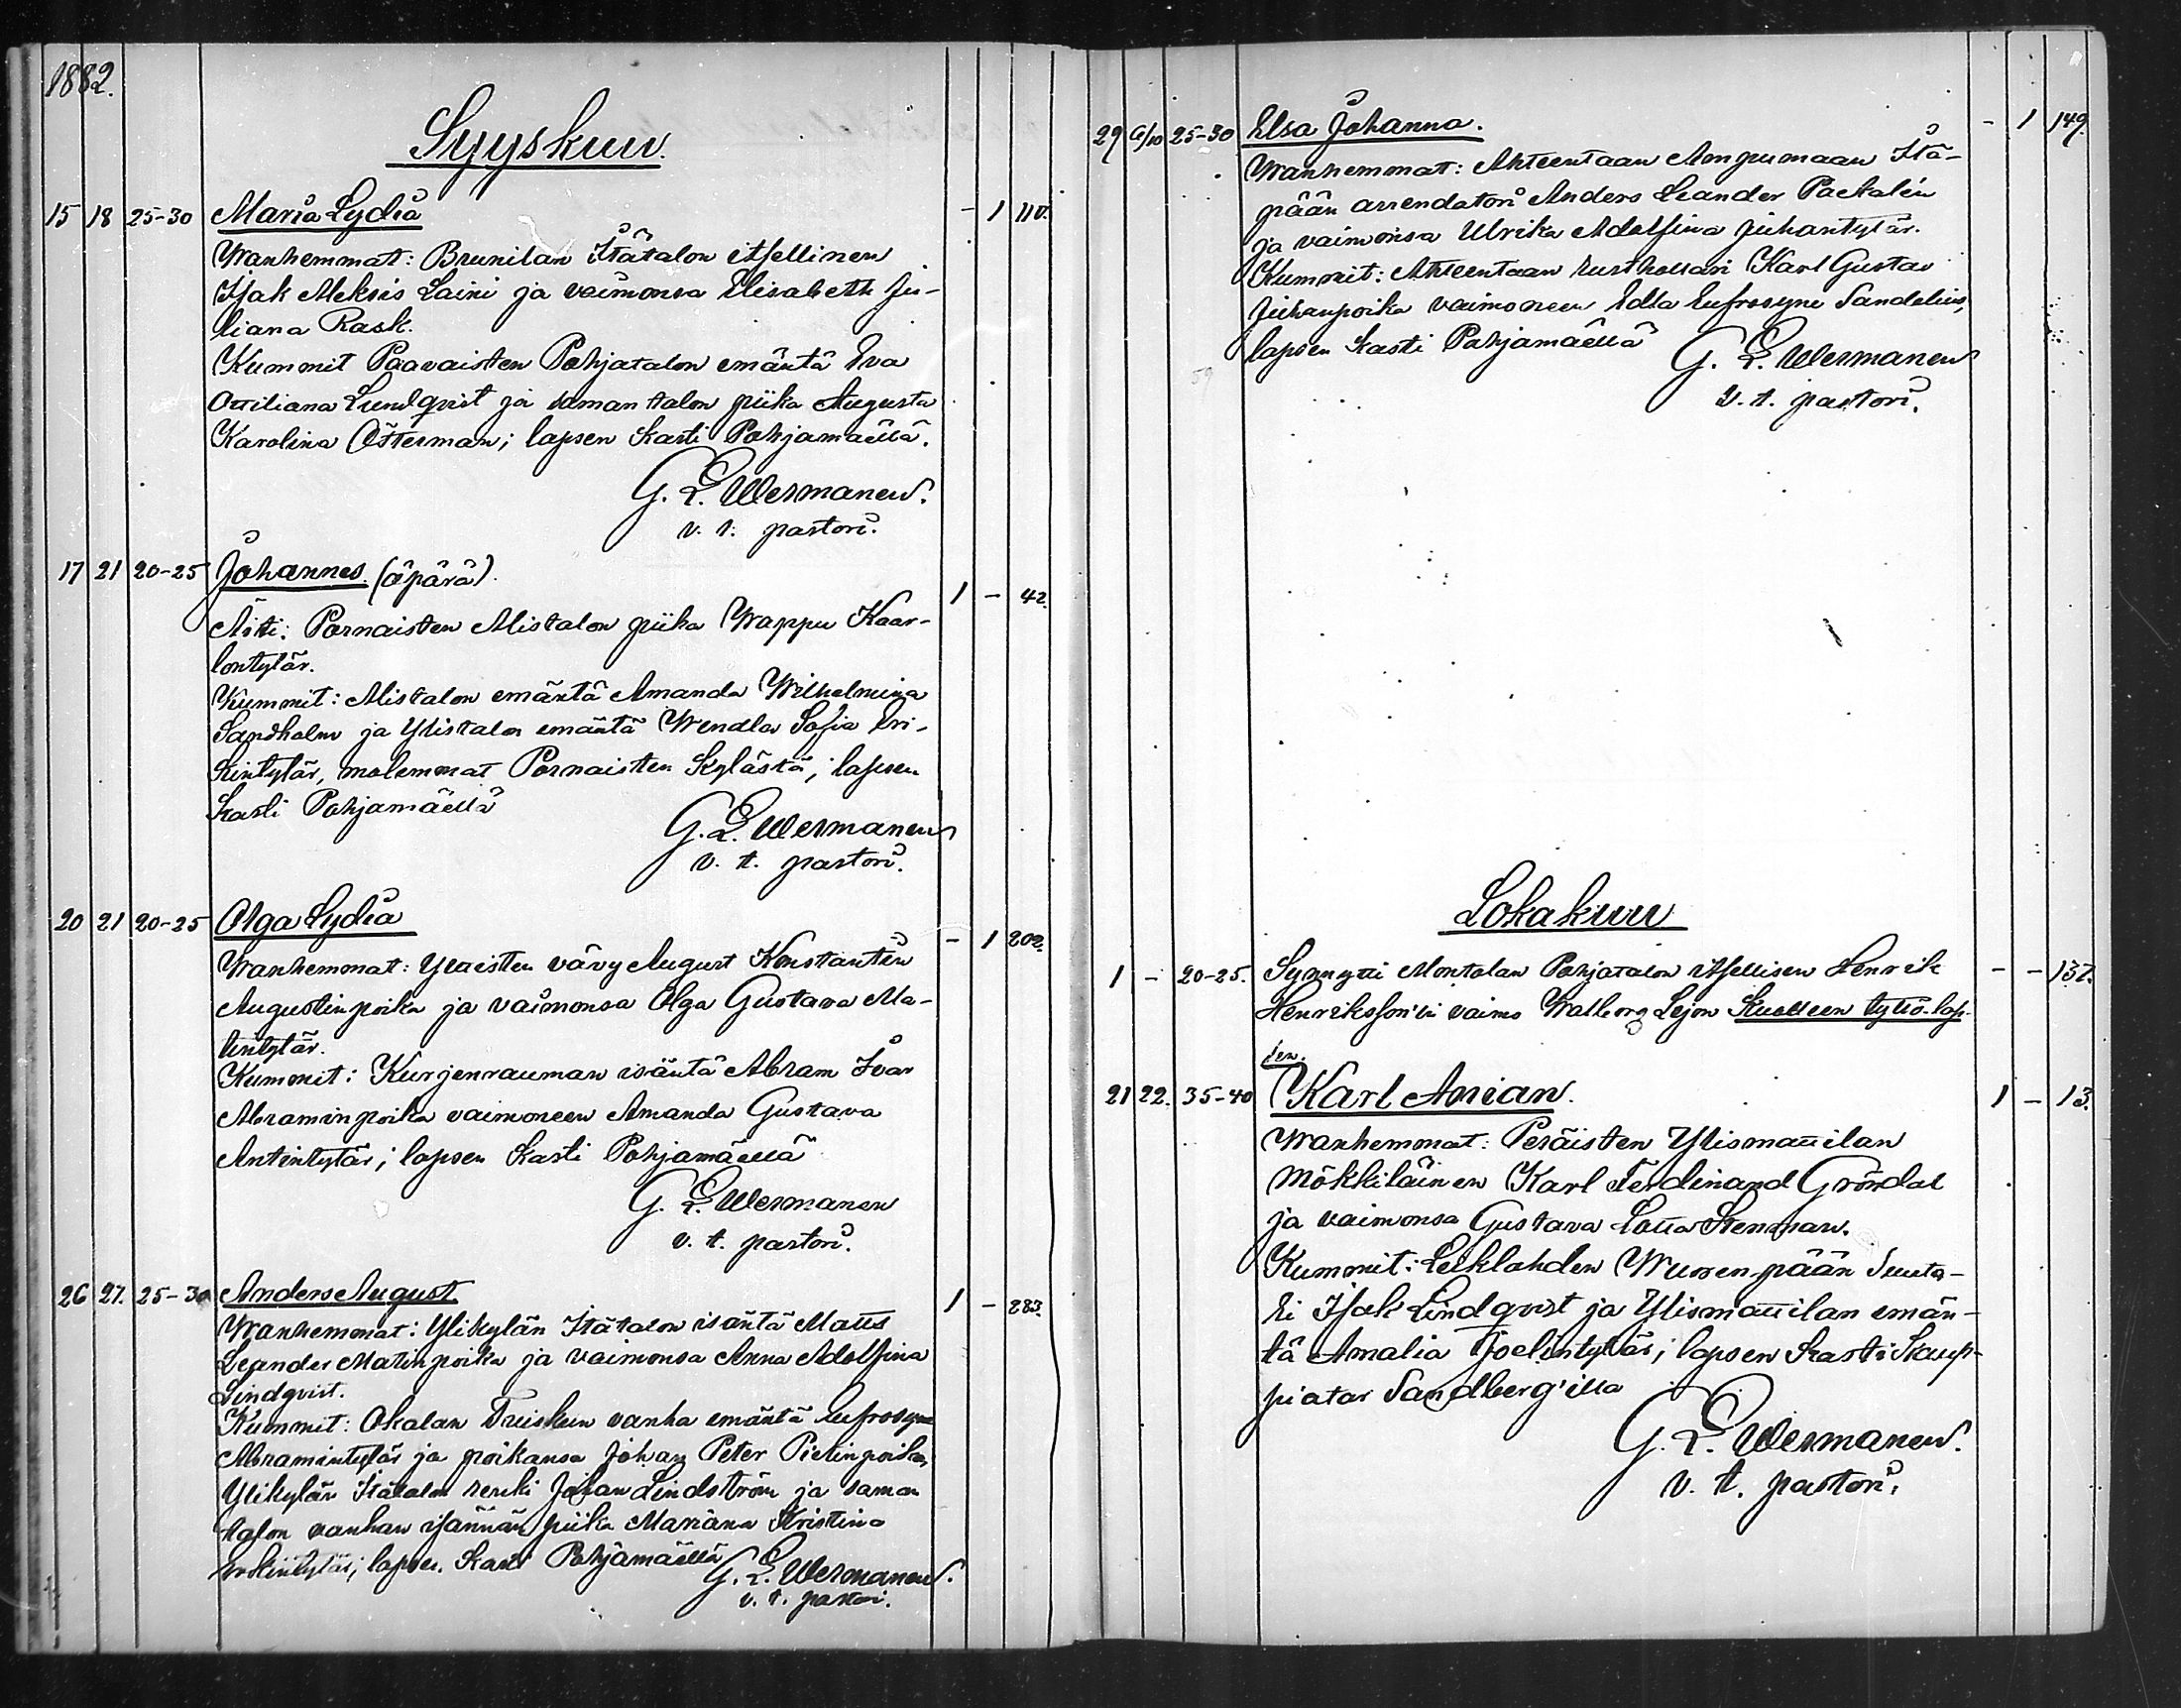 1882.
Syyskuu.
15 18 25-30 Maria Lydia - 1 110.
Wanhemmat: Brunilan Itätalon itsellinen
Isak Aleksis Laini ja vaimonsa Elisabeth Ju-
liana Rask.
Kummit Paavaisten Pohjatalon emäntä Eva
Ottiliana Lundqvist ja saman talon piika Augusta
Karolina Österman; lapsen kasti Pohjamäellä.
G. E. Wermanen.
v. t. pastori.
17 21 20-25 Johannes. (äpärä). 1 - 42.
Äiti: Pornaisten Alistalon piika Wappu Kaar-
lontytär.
Kummit: Alistalon emäntä Amanda Wilhelmina
Sandholm ja Ylistalon emäntä Wendla Sofia Eri-
kintytär, molemmat Pornaisten kylästä; lapsen
kasti Pohjamäellä
G. E. Wermanen
v. t. pastori.
20 21 20-25 Olga Lydia - 1 202.
Wanhemmat: Ylaisten vävy August Konstantin
Augustinpoika ja vaimonsa Olga Gustava Ma-
tintytär.
Kummit: Kurjenrauman isäntä Abram Ivar
Abraminpoika vaimoneen Amanda Gustava
Antintytär; lapsen kasti Pohjamäellä
G. E. Wermanen
v. t. pastori.
26 27. 25-30 Anders August. 1 - 283.
Wanhemmat: Ylikylän Itätalon isäntä Matts
Leander Matinpoika ja vaimonsa Anna Adolfina
Lindqvist.
Kummit: Okalan vanha emäntä Eufrosyne
Abramintytär ja poikansa Johan Peter Pietinpoika,
Ylikylän Itätalon renki Johan Lindström ja saman
talon vanhan isännän piika Mariana Kristina
Erkintytär; lapsen kasti Pohjamäellä
G. E. Wermanen.
v. t. pastori.
29 6/10 25-30 Elsa Johanna. - 1 149.
Wanhemmat: Ahteentaan Itä-
pään arrendatori Anders Leander Packalén
ja vaimonsa Ulrika Adolfina Juhantytär.
Kummit: Ahteentaan rusthollari Karl Gustav
Juhanpoika vaimoneen Edla Eufrosyne Sandelius,
lapsen kasti Pohjamäellä
G. E. Wermanen
v. t. pastori.
Lokakuu
1 - 20-25. Synnytti Montolan Pohjatalon itsellisen Henrik - - 137.
Henriksson'in vaimo Walborg Lejon kuolleen tyttö-lap-
sen.
21 22. 35-40 Karl Anian. 1 - 13.
Wanhemmat: Peräisten Ylismattilan
mökkiläinen Karl Ferdinand Gröndal
ja vaimonsa Gustava Lotta Stenman.
Kummit: Leiklahden Wuorenpään suuta-
ri Isak Lindqvist ja Ylismattilan emän-
tä Amalia Joelintytär; lapsen kasti Skaup-
piatar Sandberg'illa
G. E. Wermanen.
v. t. pastori.